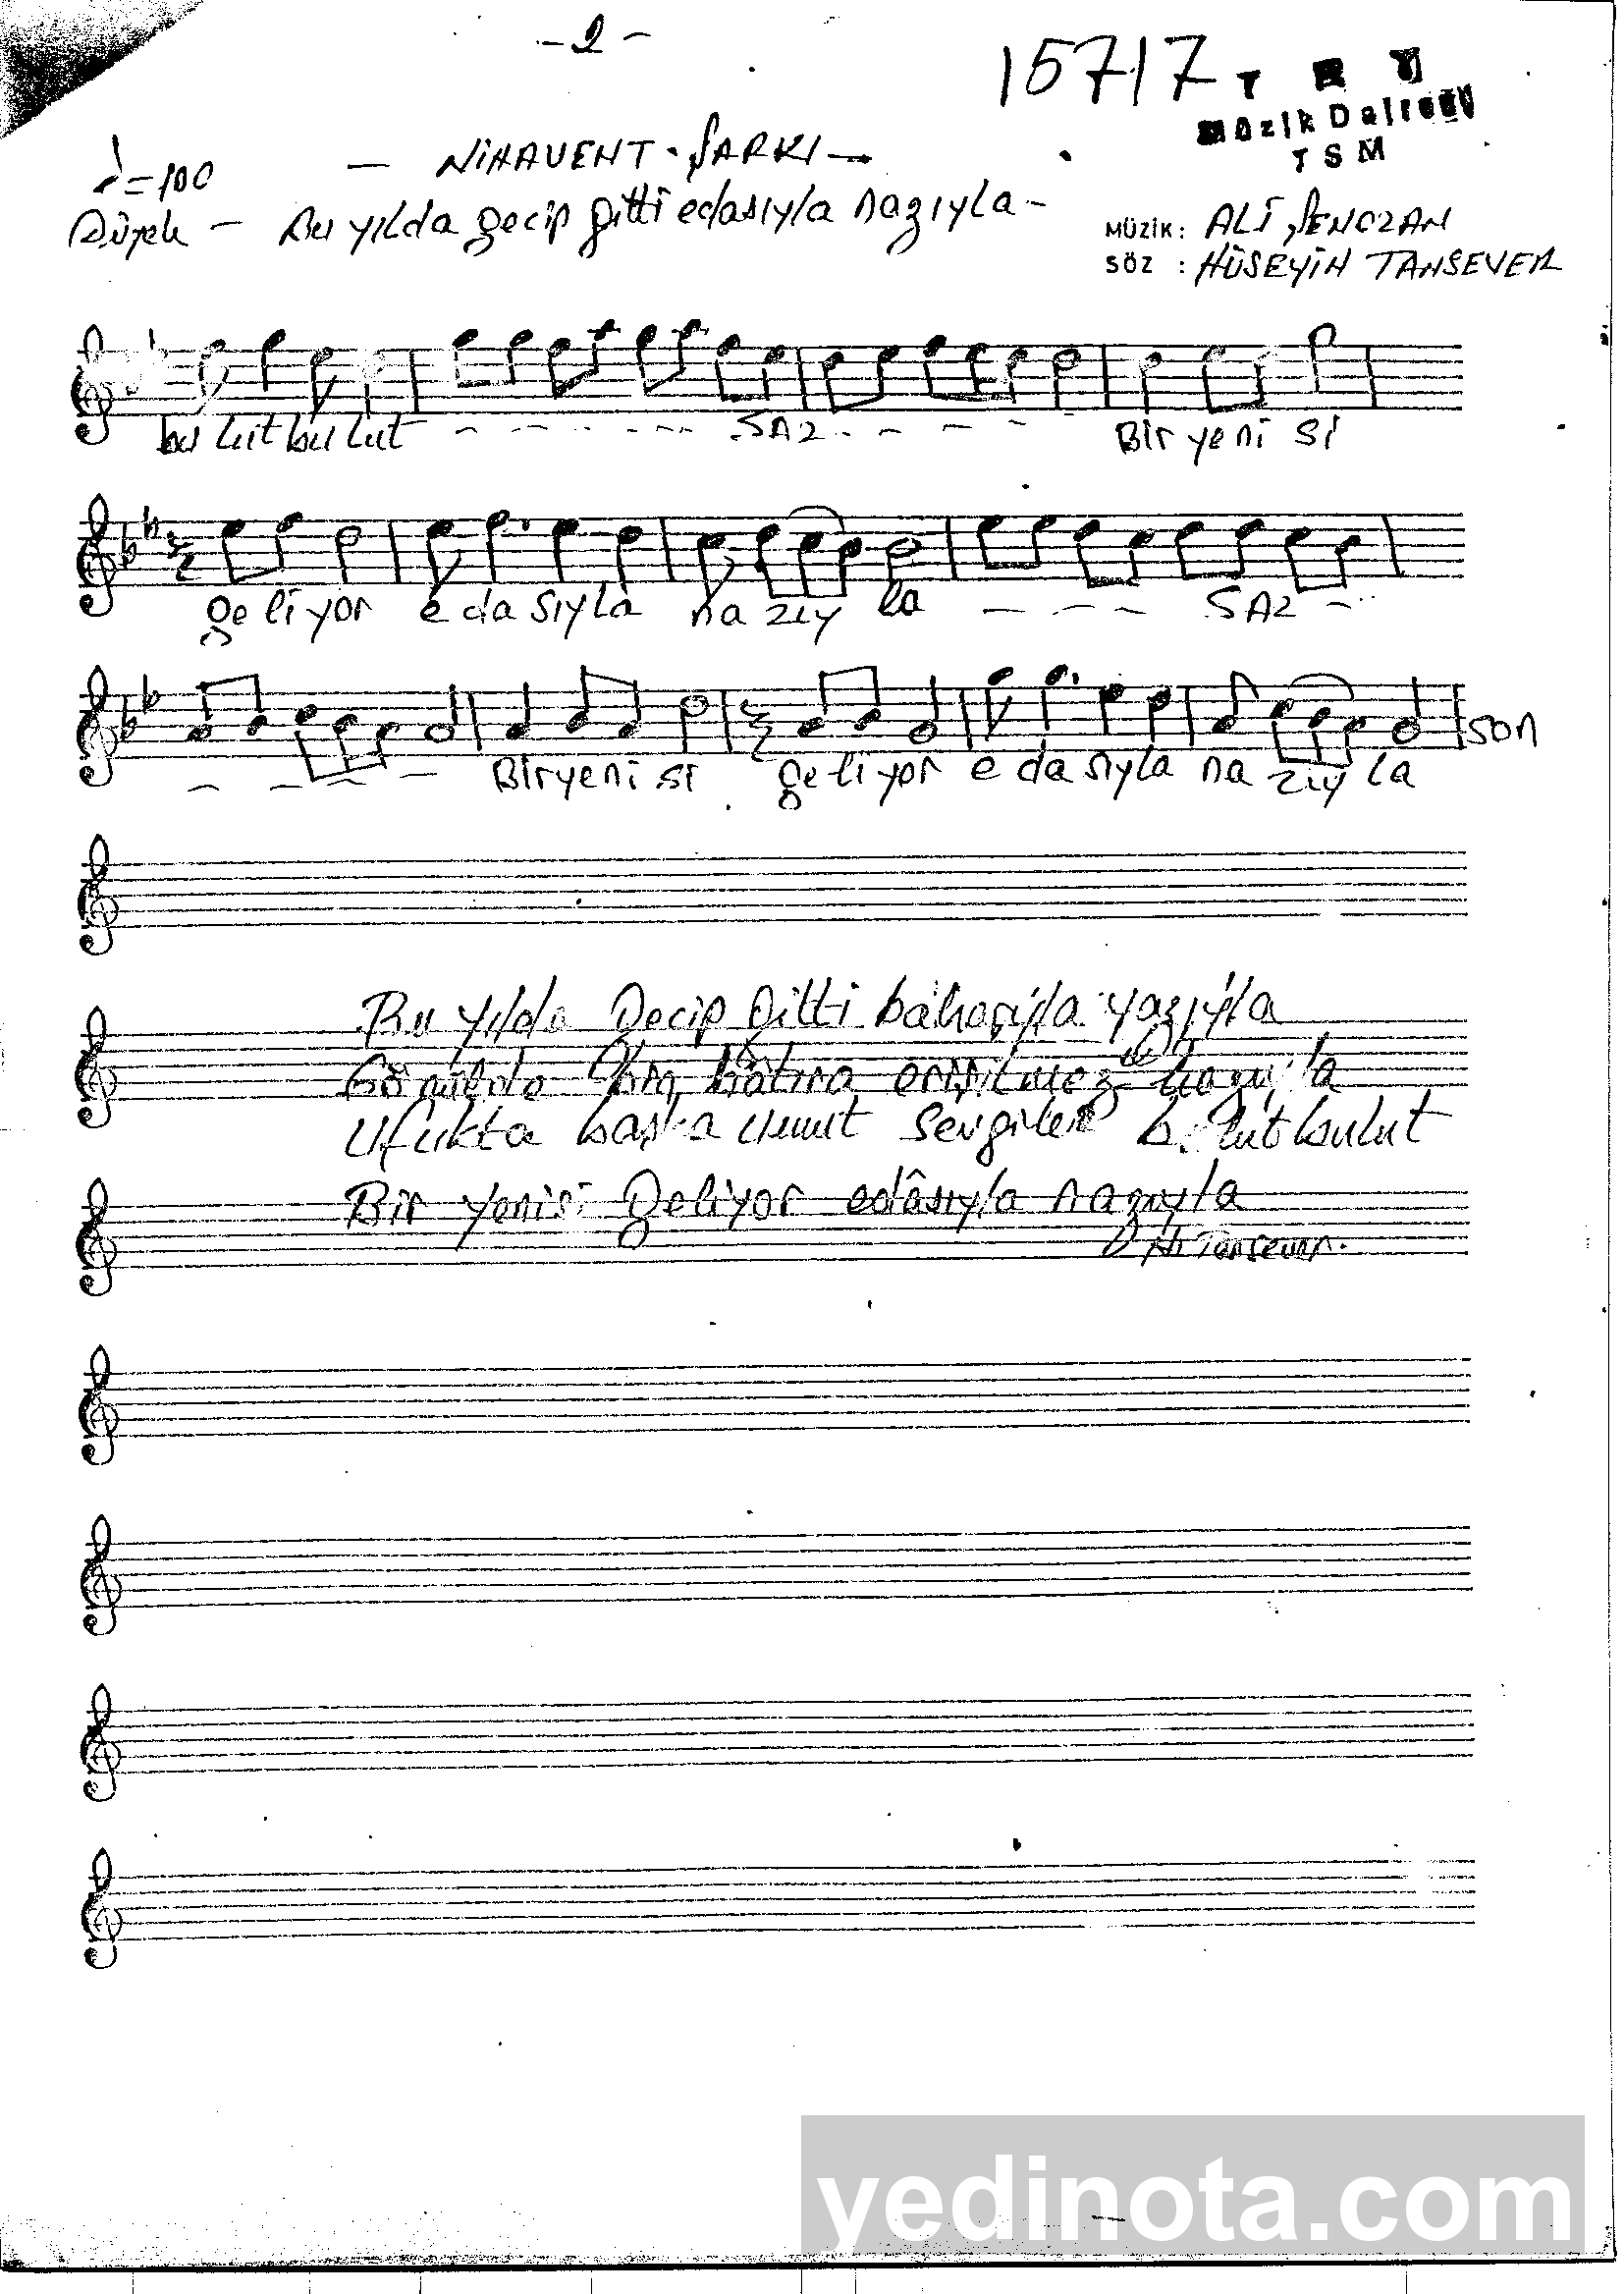 - 2 -
15717
T R T
Müzik Dairesi
TSM
♩=100
- NİHAVENT - ŞARKI -
Düyek - Bu yılda geçip gitti edasıyla nazıyla -
MÜZİK : ALİ ŞENOZAN
SÖZ : HÜSEYİN TANSEVER
bu lut bu lut - - - - - SAZ - - - - - Bir ye ni si
ge li yor e da sıy la na zıy la - - - - SAZ -
- - - - Bir ye ni si ge li yor e da sıy la na zıy la SON
Bu yılda geçip gitti baharıyla yazıyla
Gönülde bin hâtıra erişilmez hazıyla
Ufukta başka umut sevgiler bulut bulut
Bir yenisi geliyor edâsıyla nazıyla
H. Tansever.
yedinota.com